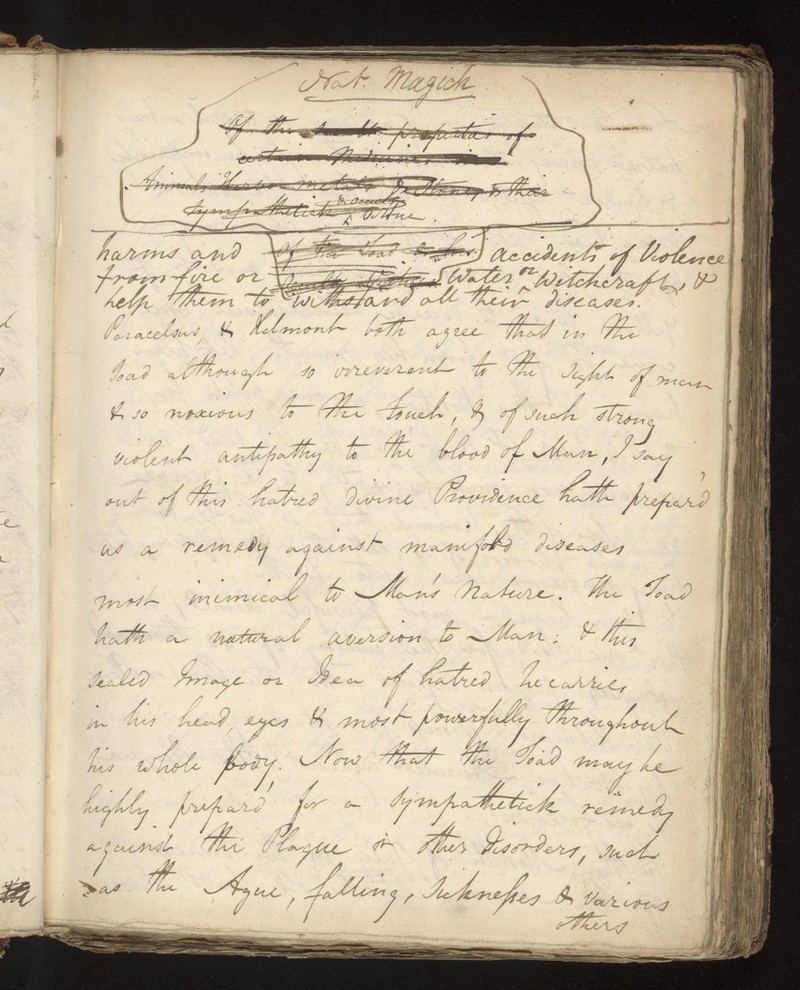 Nat. Magick
Of the occult properties of
certain Medicines in
Animals Herbs metals & Stones & their
Sympathetick & occult Virtue.
harms and Of the Toad accidents of Violence
from fire or Water or Witchcraft, &
help them to withstand all their diseases.
Paracelsus, & Helmont both agree that in the
Toad although so irreverent to the sight of man
& so noxious to the touch, & of such strong
violent antipathy to the blood of Man, I say
out of this hatred divine Providence hath prepar'd
us a remedy against manifold diseases
most inimical to Man's nature. The Toad
hath a natural aversion to Man: & this
sealed Image or Idea of hatred he carries
in his head, eyes & most powerfully throughout
his whole body. Now that the Toad may be
highly prepar'd for a Sympathetick remedy
against the Plague or other disorders, such
as the Ague, falling, sickness & various
others